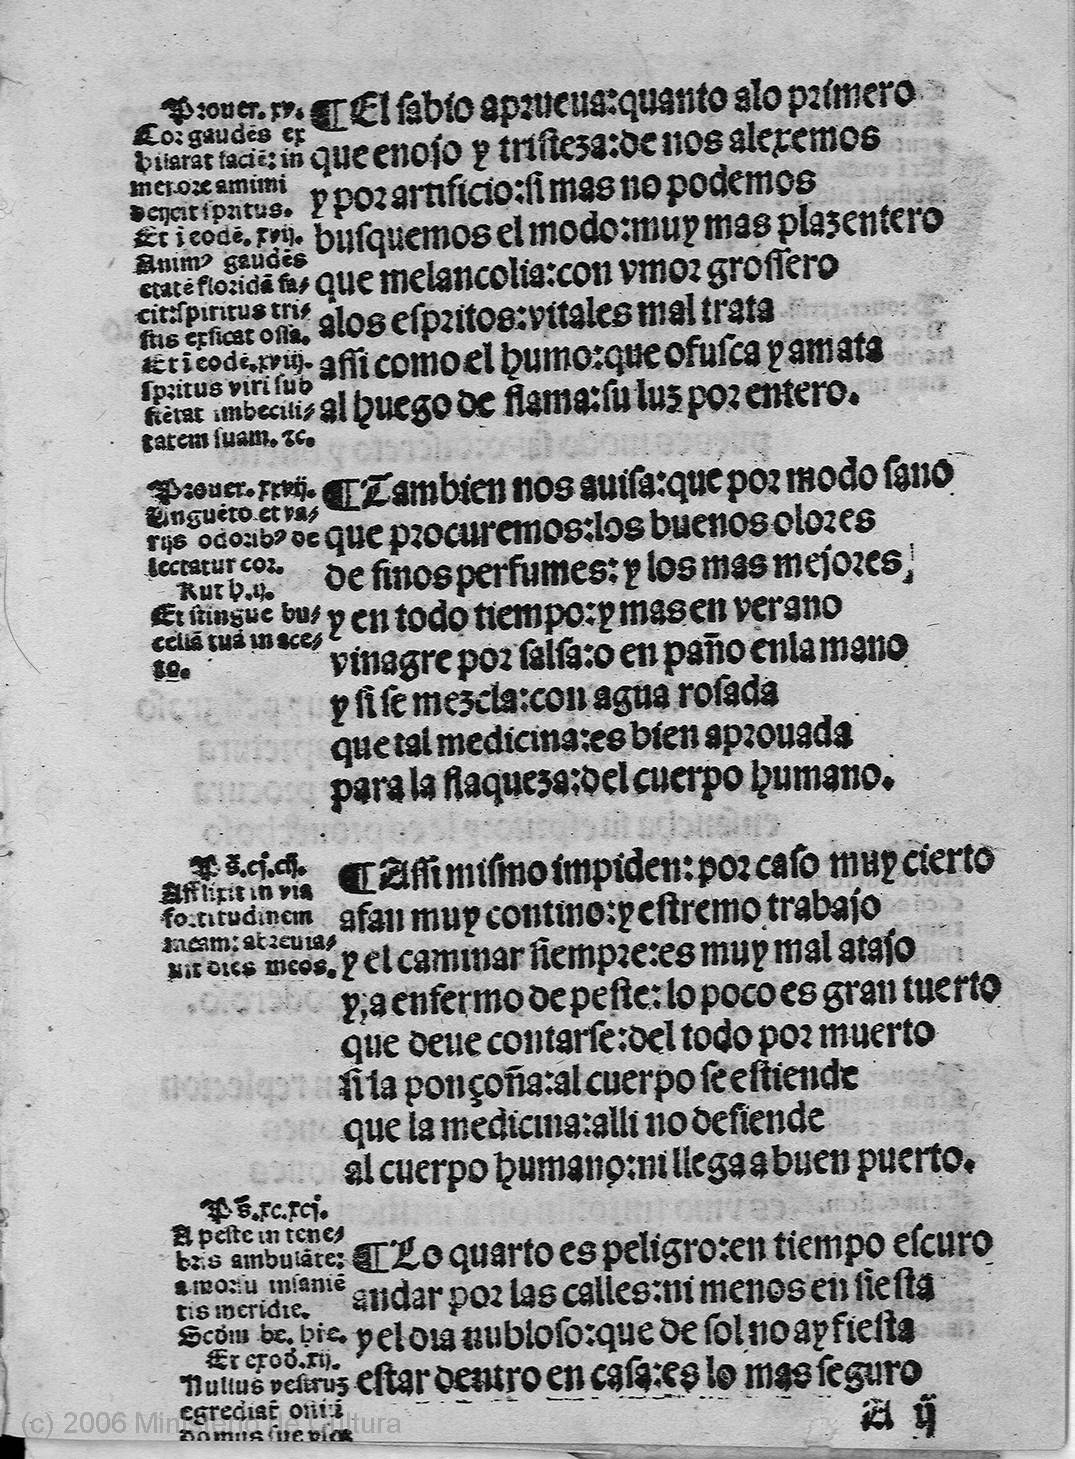 Prouer. xv.
Cor gaudēs ex
hilarat faciē: in
merore animi
deijcit spritus.
Et ī eodē. xvij.
Animꝰ gaudēs
etatē floridā fa/
cit: spiritus tri/
stis exsicat ossa.
Et ī eodē. xviij.
spritus viri sub
stētat imbecili/
tatem suam. ⁊c.
¶ El sabio aprueua: quanto alo primero
que enojo y tristeza: de nos alexemos
y por artificio: si mas no podemos
busquemos el modo: muy mas plazentero
que melancolia: con vmor grossero
alos espritos: vitales mal trata
assi como el humo: que ofusca y amata
al huego de flama: su luz por entero.
Prouer. xxvij.
Unguēto et va/
rijs odoribꝰ de
lectatur cor.
Rut h. ij.
Et ītingue bu/
cellā tuā in ace/
to.
¶ Tambien nos auisa: que por modo sano
que procuremos: los buenos olores
de finos perfumes: y los mas mejores
y en todo tiempo: y mas en verano
vinagre por salsa: o en paño enla mano
y si se mezcla: con agua rosada
que tal medicina: es bien aprouada
para la flaqueza: del cuerpo humano.
P s̄. cj. cij.
Afflixit in via
fortitudinem
meam: abreuia/
uit dies meos.
¶ Assi mismo impiden: por caso muy cierto
afan muy contino: y estremo trabajo
y el caminar siempre: es muy mal atajo
y, a enfermo de peste: lo poco es gran tuerto
que deue contarse: del todo por muerto
si la ponçoña: al cuerpo se estiende
que la medicina: alli no defiende
al cuerpo humano: ni llega a buen puerto.
P s̄. xc. xcj.
A peste in tene/
bris ambulāte:
a morsu insaniē
tis meridie.
Scdm be. hie.
Et exod. xij.
Nullus vestruz
egrediat̄
domus sue
¶ Lo quarto es peligro: en tiempo escuro
andar por las calles: ni menos en siesta
y el dia nubloso: que de sol no ay fiesta
estar dentro en casa: es lo mas seguro
A ij
(c) 2006 Ministerio de Cultura